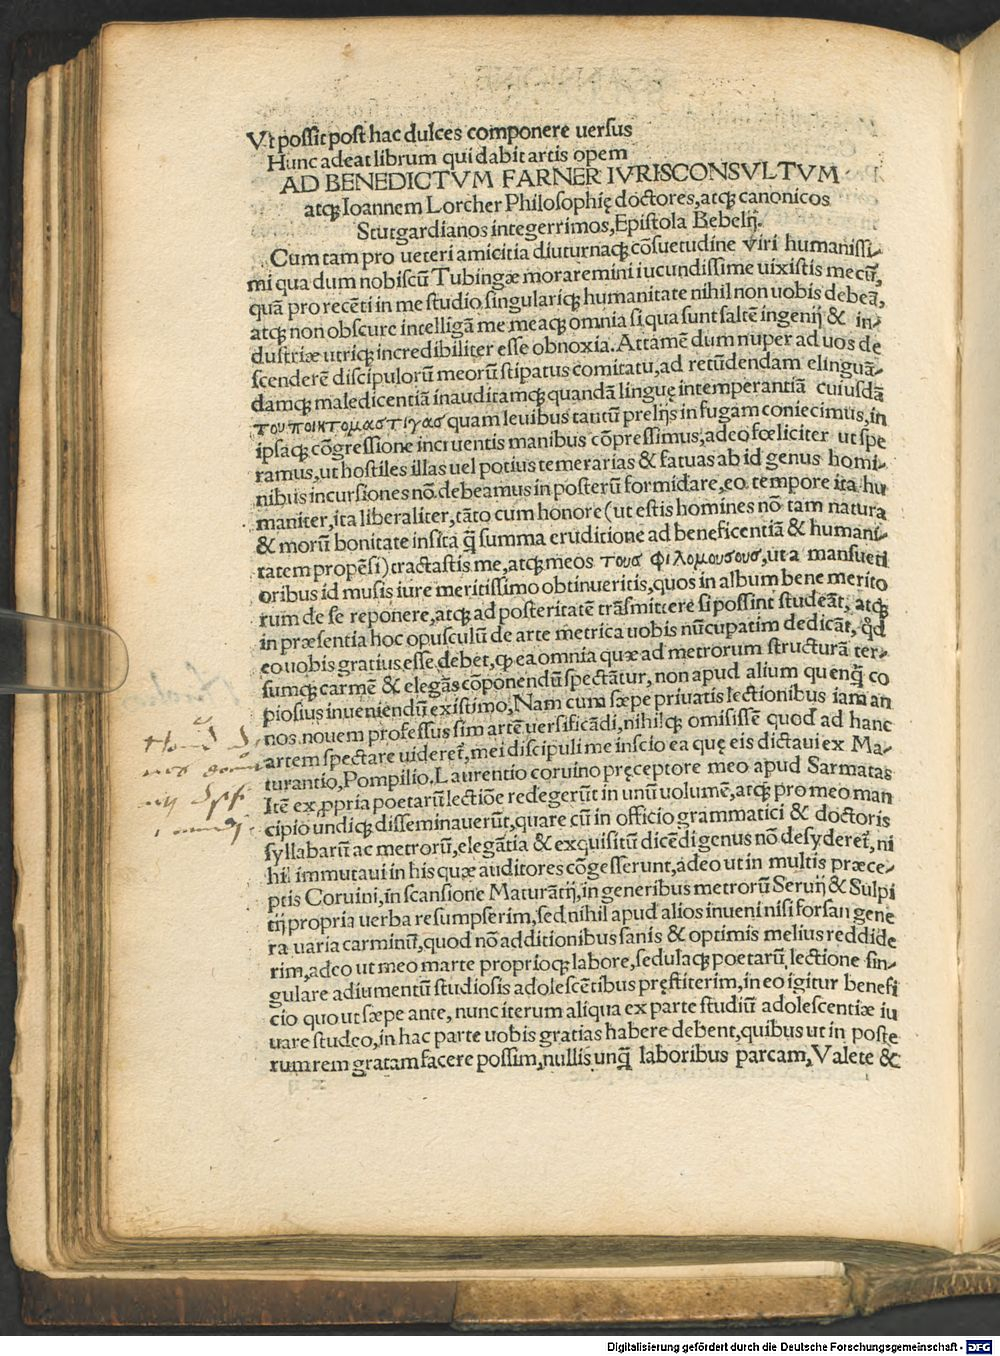 Vt possit post hac dulces componere uersus
Hunc adeat librum qui dabit artis opem
AD BENEDICTVM FARNER IVRISCONSVLTVM
atqꝫ Ioannem Lorcher Philosophię doctores, atqꝫ canonicos
Stutgardianos integerrimos, Epistola Bebelij.
Cum tam pro ueteri amicitia diuturnaqꝫ cõsuetudine viri humanissi⸗
mi qua dum nobiscũ Tubingæ moraremini iucundissime uixistis mecũ,
quã pro recẽti in me studio singulariqꝫ humanitate nihil non uobis debeã,
atqꝫ non obscure intelligã me meaqꝫ omnia si qua sunt saltẽ ingenij & in⸗
dustriæ utriqꝫ incredibiliter esse obnoxia. Attamẽ dum nuper ad uos de
scenderẽ discipulorũ meorũ stipatus comitatu, ad retũdendam elinguã⸗
damqꝫ maledicentiã inauditamqꝫ quandã linguę intemperantiã cuiusdã
του ποιητομαστιγας quam leuibus tantũ prelijs in fugam coniecimus, in
ipsaqꝫ cõgressione incruentis manibus cõpressimus, adeo fœliciter ut spe
ramus, ut hostiles illas uel potius temerarias & fatuas ab id genus homi⸗
nibus incursiones nõ debeamus in posterũ formidare, eo tempore ita hu
maniter, ita liberaliter, tãto cum honore (ut estis homines nõ tam natura
& morũ bonitate insita q̃ summa eruditione ad beneficentiã & humani⸗
tatem propẽsi) tractastis me, atqꝫ meos τους φιλομουσους, ut a mansueti
oribus id musis iure meritissimo obtinueritis, quos in album bene merito
rum de se reponere, atqꝫ ad posteritatẽ trãsmittere si possint studeãt, atqꝫ
in præsentia hoc opusculũ de arte metrica uobis nũcupatim dedicãt, q̃d
eo uobis gratius esse debet, ꝙ ea omnia quæ ad metrorum structurã ter⸗
sumqꝫ carmẽ & elegãs cõponendũ spectãtur, non apud alium quenq̃ co
piosius inueniendũ existimo, Nam cum sæpe priuatis lectionibus iam an
nos nouem professus sim artẽ uersificãdi, nihilqꝫ omisissẽ quod ad hanc
artem spectare uideret̃, mei discipuli me inscio ea quę eis dictaui ex Ma⸗
turantio, Pompilio, Laurentio coruino pręceptore meo apud Sarmatas
Itẽ ex ꝓpria poetarũ lectiõe redegerũt in unũ uolumẽ, atqꝫ pro meo man
cipio undiqꝫ disseminauerũt, quare cũ in officio grammatici & doctoris
syllabarũ ac metrorũ, elegãtia & exquisitũ dicẽdi genus nõ desyderet̃, ni
hil immutaui in his quæ auditores cõgesserunt, adeo ut in multis præce⸗
ptis Coruini, in scansione Maturãtij, in generibus metrorũ Seruij & Sulpi
tij propria uerba resumpserim, sed nihil apud alios inueni nisi forsan gene
ra uaria carminũ, quod nõ additionibus sanis & optimis melius reddide
rim, adeo ut meo marte proprioqꝫ labore, sedulaqꝫ poetarũ lectione sin⸗
gulare adiumentũ studiosis adolescẽtibus pręstiterim, in eo igitur benefi
cio quo ut sæpe ante, nunc iterum aliqua ex parte studiũ adolescentiæ iu
uare studeo, in hac parte uobis gratias habere debent, quibus ut in poste
rum rem gratam facere possim, nullis unq̃ laboribus parcam, Valete &
Digitalisierung gefördert durch die Deutsche Forschungsgemeinschaft - DFG